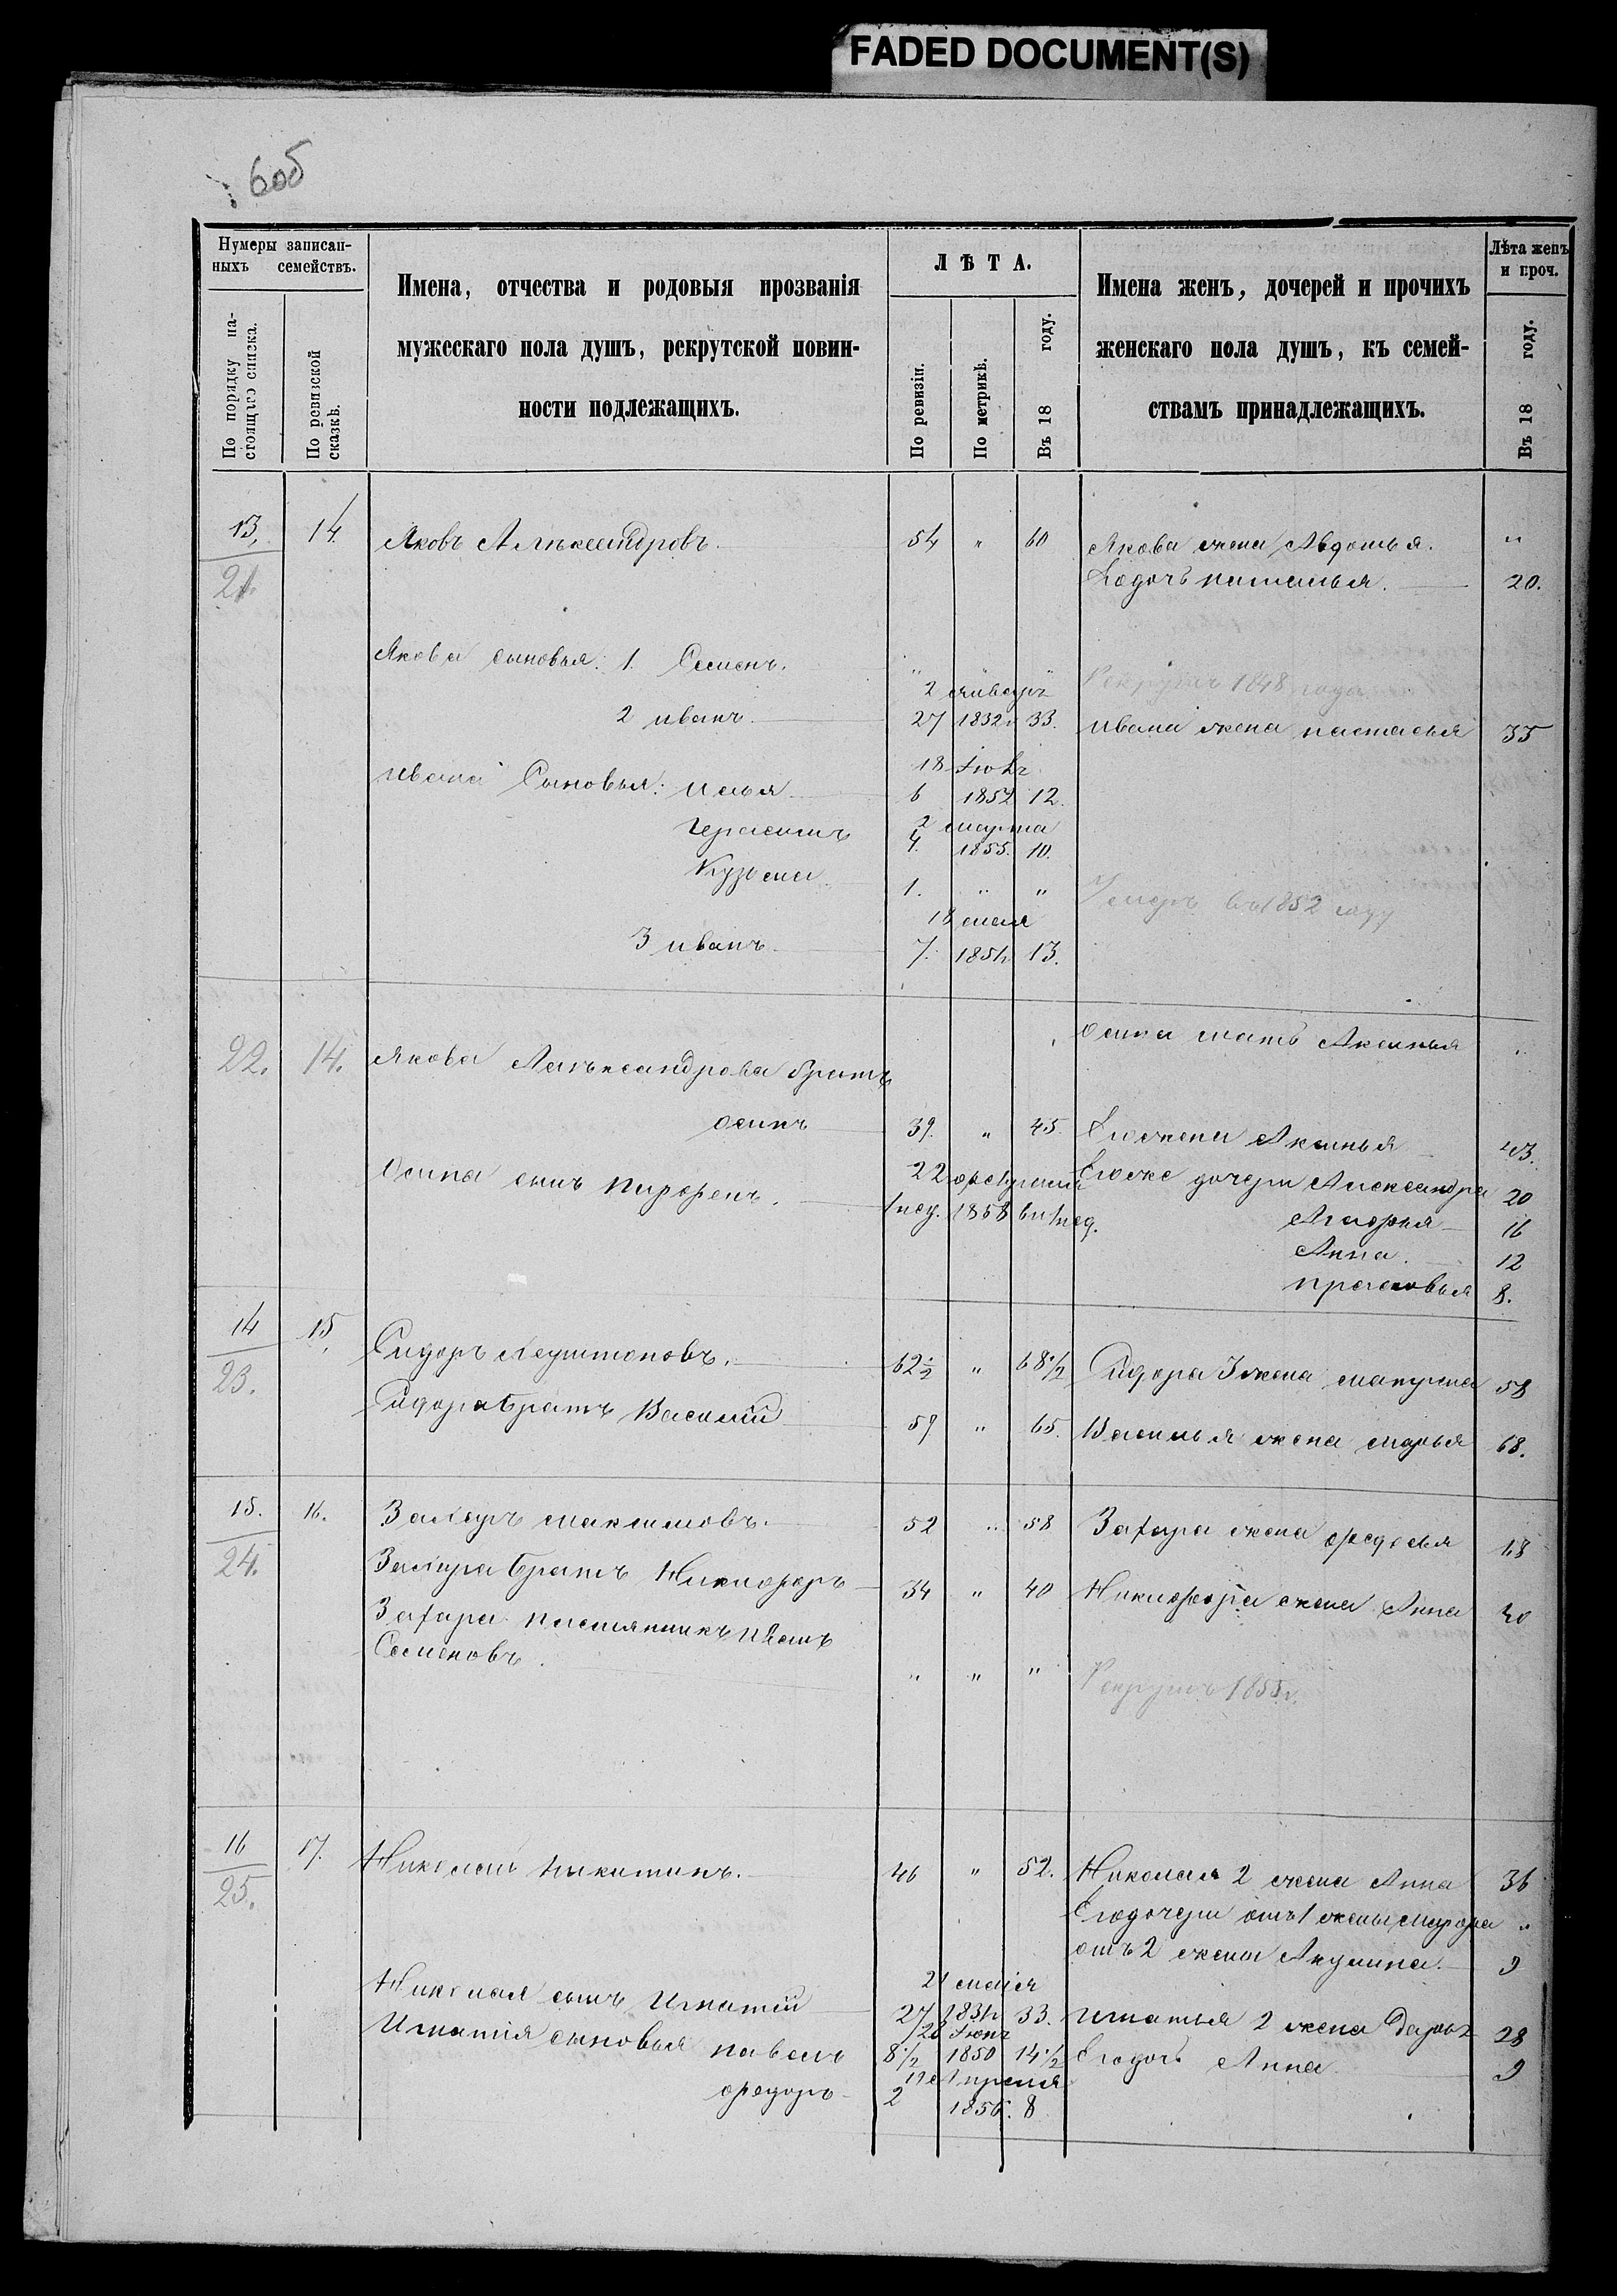 FADED DOCUMENT(S)
6об
Нумеры записан-
ныхъ семействъ.
По порядку на-
стоящаго списка.
По ревизской
сказкѣ.
Имена, отчества и родовыя прозванія
мужескаго пола душъ, рекрутской повин-
ности подлежащихъ.
ЛѢТА.
По ревизіи.
По метрикѣ.
Въ 18 году.
Имена женъ, дочерей и прочихъ
женскаго пола душъ, къ семей-
ствамъ принадлежащихъ.
Лѣта женъ
и проч.
Въ 18 году.
13, 14. Яковъ Алѣксандровъ. 54 " 60 Якова жена Авдотья. "
21. Ево дочь наталья. 20.
Якова сыновья: 1. Семенъ. " " Рекрутъ 1848 года
2 январъ
2 иванъ. 27 1832 33. ивана жена настасья 35
18 Іюль
ивана Сыновья: илья 6 1852 12.
2 марта
Герасимъ 4. 1855. 10.
Кузьма. 1. " " Умеръ въ 1852 году
18 мая
3 иванъ. 7. 1851 13.
22. 14. Якова Алѣксандрова братъ осипа мать Аксинья
осипъ 39. " 45. Ево жена Аксинья 43.
Осипа сынъ 22 февраля Ево же дочери Александра 20
1 нед. 1858 1 нед. 16
Анна. 12
прасковья 8.
14 15. Сидоръ 62½ " 68½ Сидора 3 жена 58
23. Сидора братъ Василий 59 " 65. Василья жена марья 68.
15. 16. Захаръ максимовъ. 52 " 58 Захара жена федосья
24. Захара братъ Никифоръ 34 " 40 Никифора жена Анна 40
Захара племянникъ
Семеновъ. " " " Рекрутъ 1855 г.
16 17. Николай никитинъ. 46 " 52. Николая 2 жена Анна 36
25. Ево дочери отъ 1 жены "
отъ 2 жена Акулина. 9
21 маія
Николая сынъ Игнатій 27 1831 33. Игнатья 2 жена Дарья 28
28 Іюнъ
Игнатія сыновья павелъ 8½ 1850 14½ Ево дочь Анна 9
Апреля
федоръ 2 1856. 8